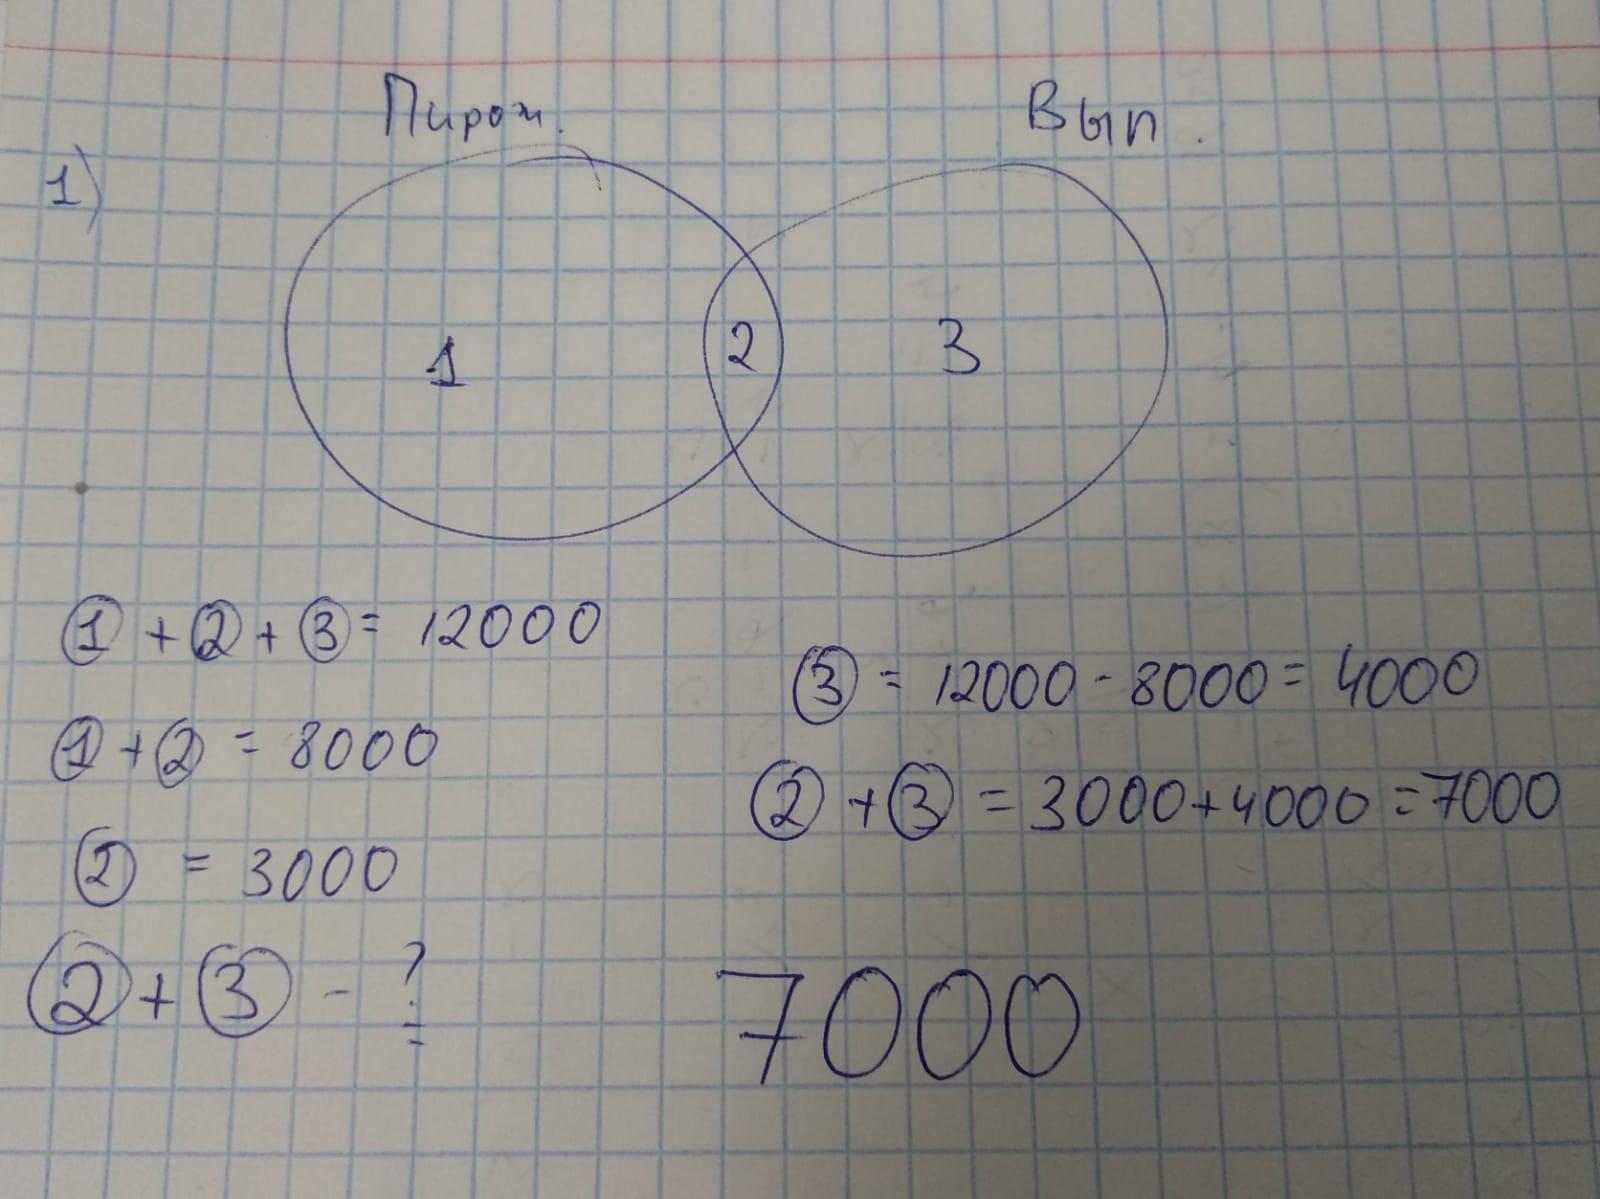 Пирож. Вып.
1)
1 2 3
① + ② + ③ = 12000
① + ② = 8000
② = 3000
② + ③ - ?
③ = 12000 - 8000 = 4000
② + ③ = 3000 + 4000 = 7000
7000